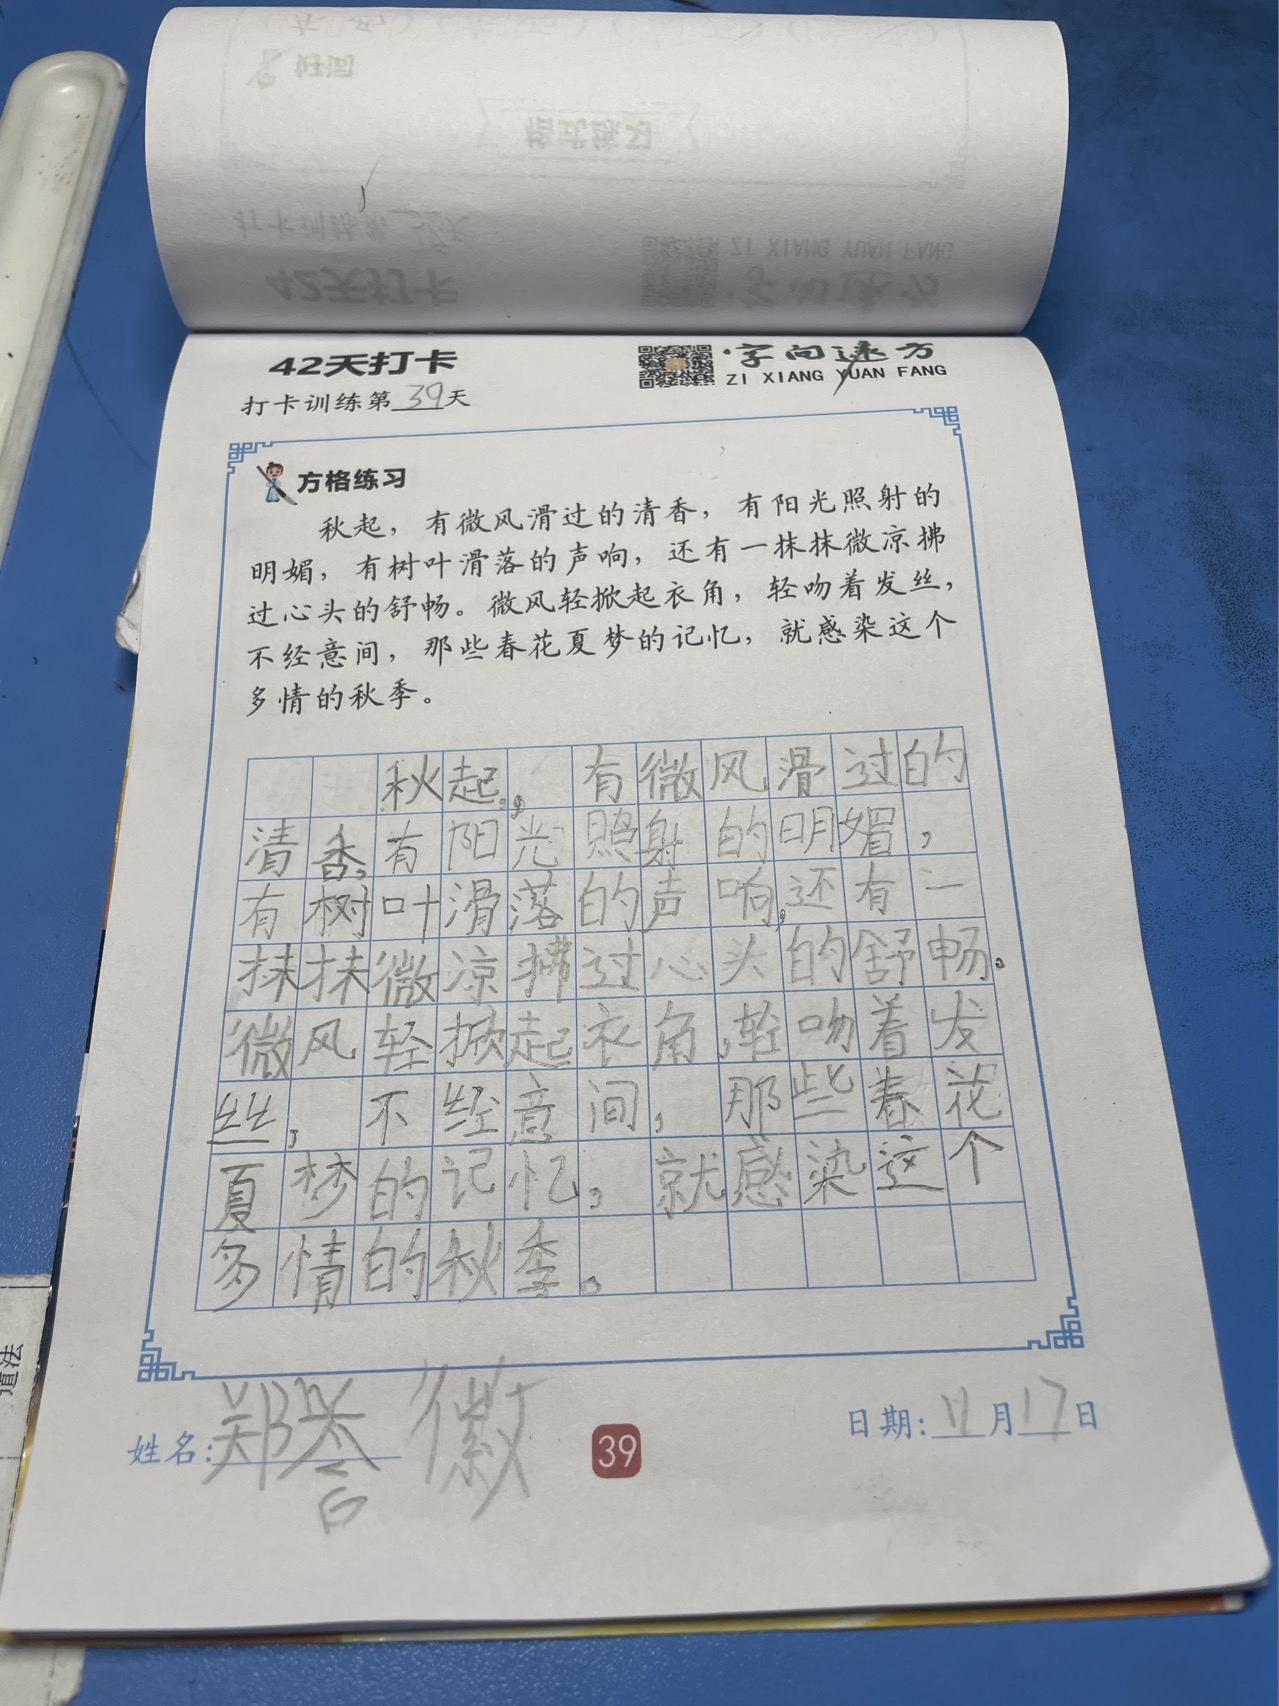 42天打卡
字向远方
ZI XIANG YUAN FANG
打卡训练第39天
方格练习
秋起，有微风滑过的清香，有阳光照射的
明媚，有树叶滑落的声响，还有一抹抹微凉拂
过心头的舒畅。微风轻掀起衣角，轻吻着发丝，
不经意间，那些春花夏梦的记忆，就感染这个
多情的秋季。
秋起，有微风滑过的
清香，有阳光照射的明媚，
有树叶滑落的声响，还有一
抹抹微凉拂过心头的舒畅。
微风轻掀起衣角，轻吻着发
丝，不经意间，那些春花
夏梦的记忆，就感染这个
多情的秋季。
姓名：郑誉徽
39
日期：11月17日
道法